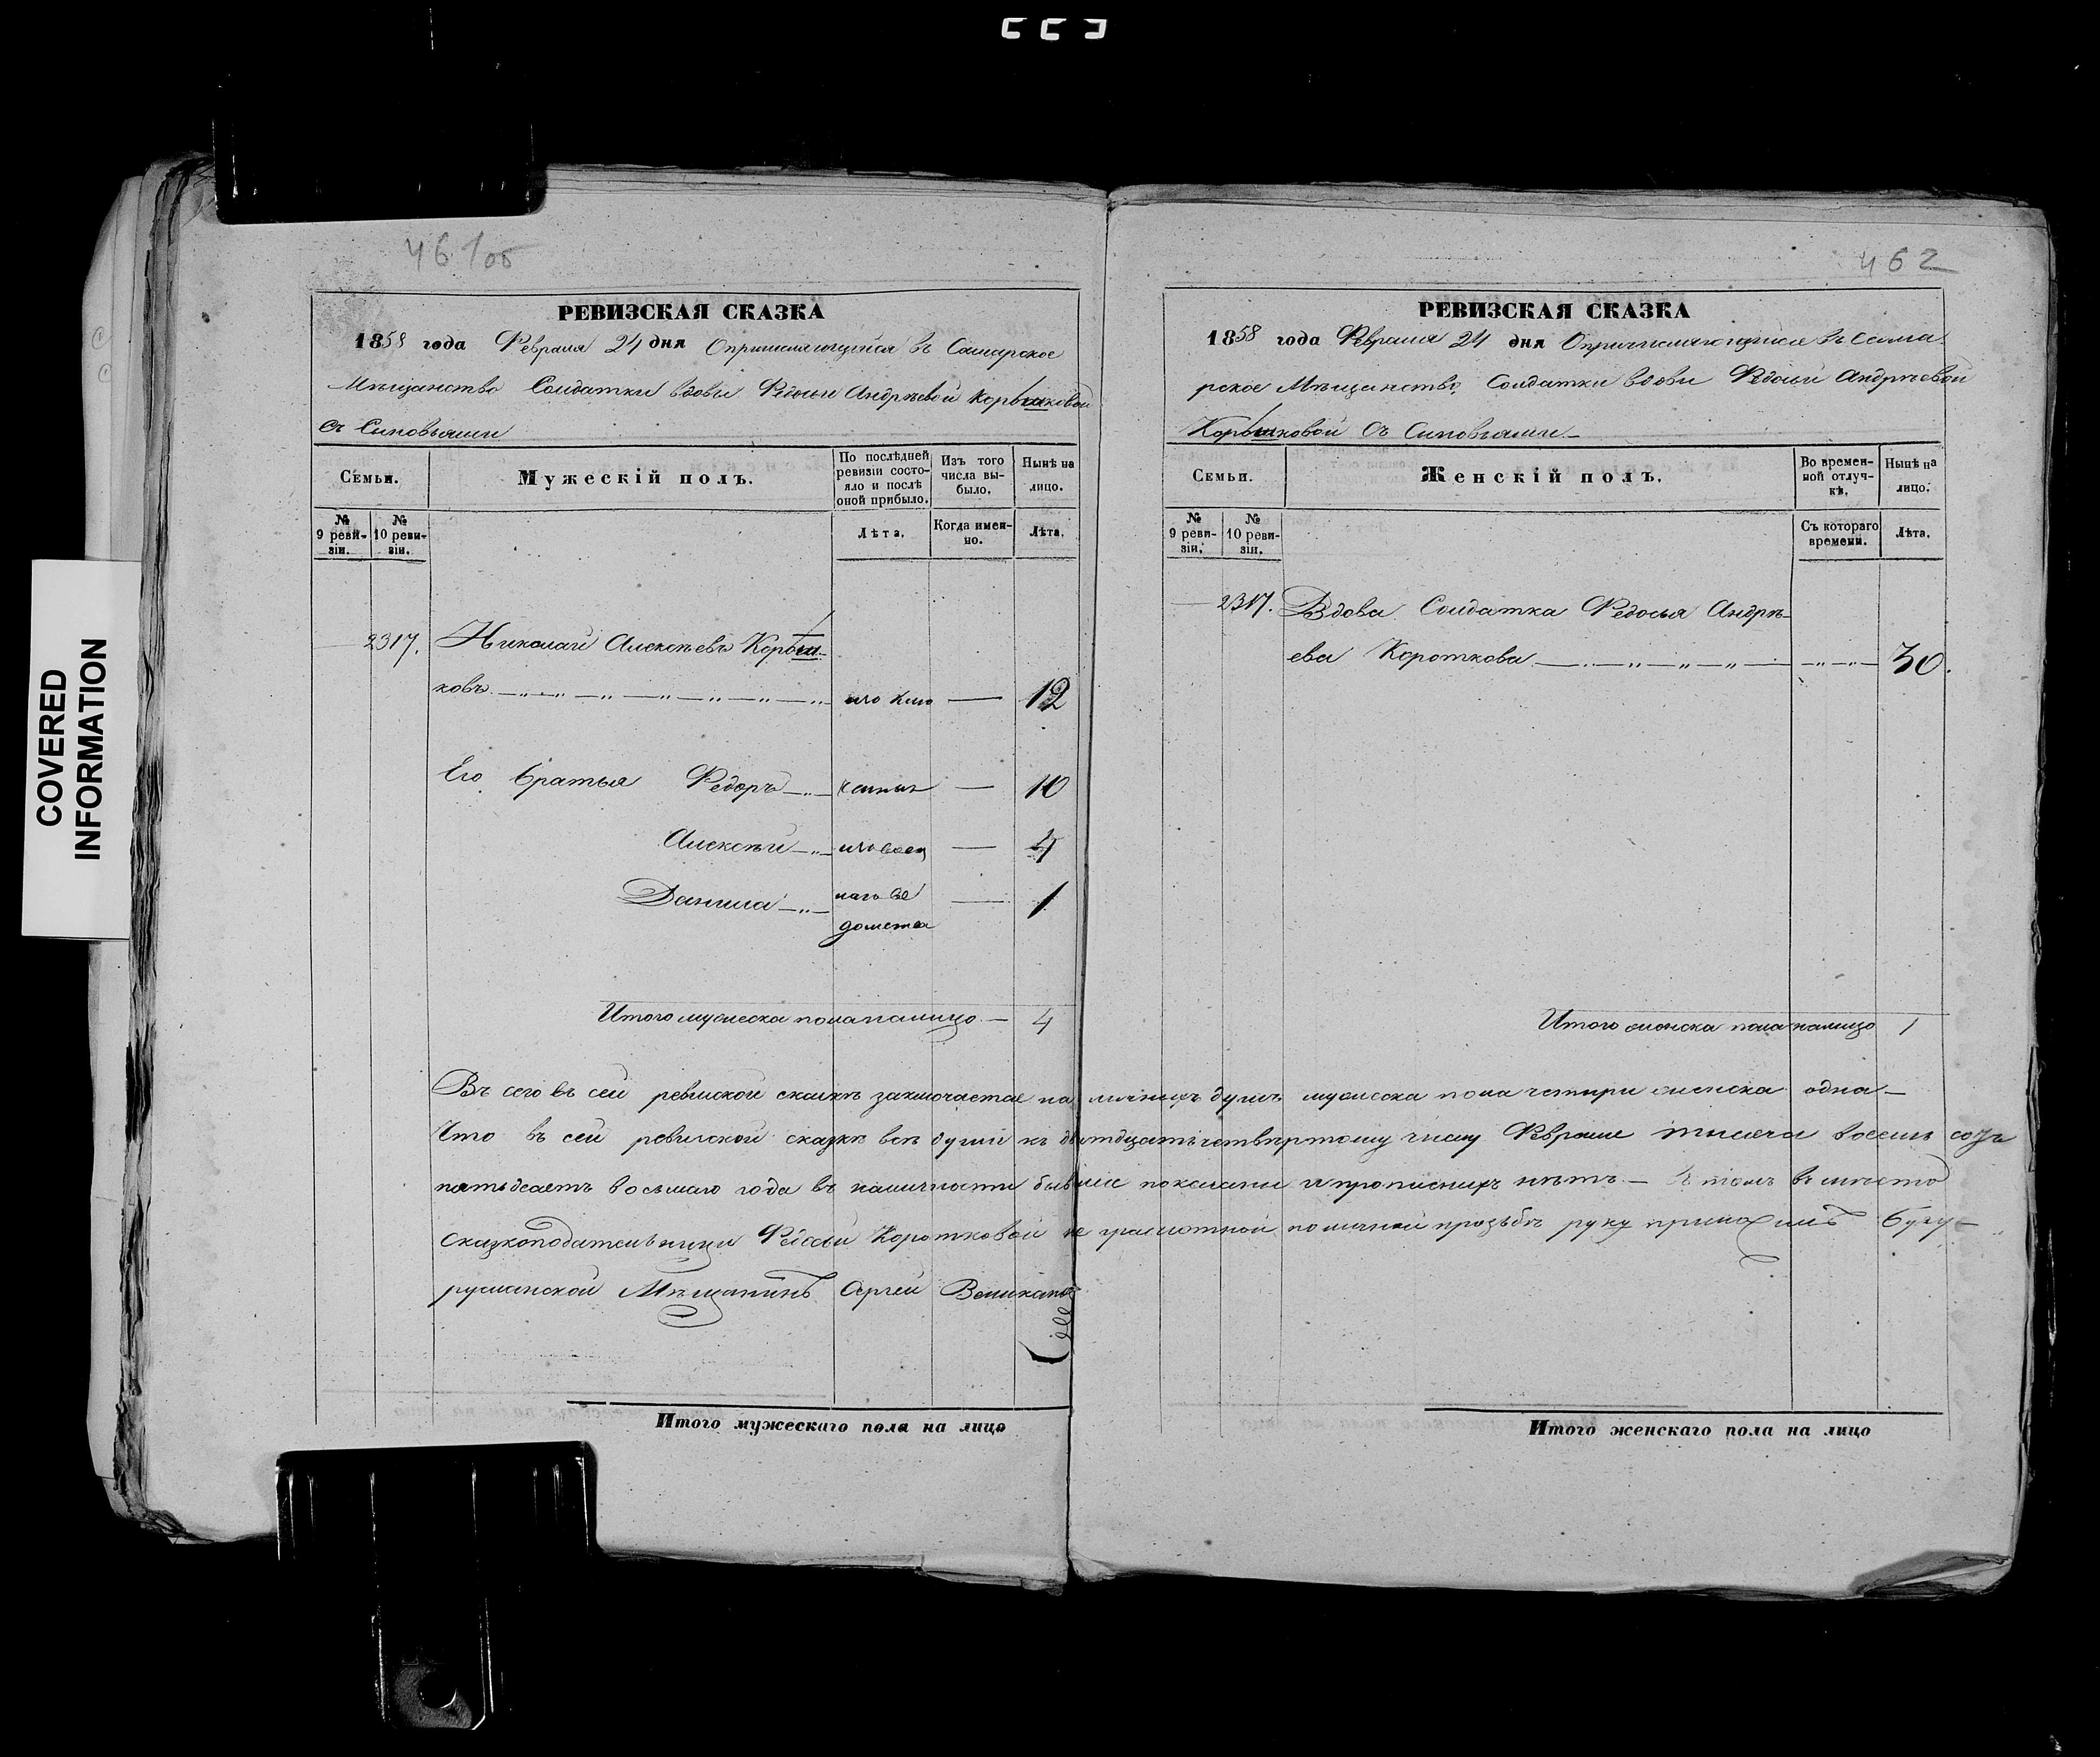 COVERED
INFORMATION
461 об
РЕВИЗСКАЯ СКАЗКА
1858 года Февраля 24 дня О причисляющейся въ Самарское
Мѣщанство Солдатки вдовы Федосьи Андрѣевой
Съ Сыновьями
Семьи.
Мужескій полъ.
По послѣдней ревизіи состояло и послѣ оной прибыло.
Изъ того числа выбыло.
Нынѣ на лицо.
№ 9 ревизіи.
№ 10 ревизіи.
Лѣта.
Когда именно.
Лѣта.
2317. Николай Алексѣевъ
ковъ 12
Его братья Федоръ — 10
Алексѣй — 4
Данила — 1
Итого мужеска пола налицо — 4
462
РЕВИЗСКАЯ СКАЗКА
1858 года Февраля 24 дня О причисляющейся въ Сама-
рское Мѣщанство, Солдатки вдовы Федосьи Андрѣевой
Съ Сыновьями
Семьи.
Женскій полъ.
Во временной отлучкѣ.
Нынѣ на лицо.
№ 9 ревизіи.
№ 10 ревизіи.
Съ котораго времени.
Лѣта.
2317. Вдова Солдатка Федосья Андрѣ-
ева Короткова 30.
Итого женска пола налицо 1
Въ сего въ сей ревиской скаскѣ заключается на личныхъ душъ мужеска пола четыри женска одна —
Что въ сей ревиской сказкѣ всѣ души къ двтдцать четвѣртому числу Февраля тысяча восемь сотъ
пятьдсятъ восьмаго года въ наличности бывшие показаны и прописныхъ нѣтъ — В томъ вмѣсто
сказкоподательницы Федосьи Коротковой не грамотной по личной прозьбѣ руку приложилъ Бугу-
русланской Мѣщанинъ Сергей Великановъ
Итого мужескаго пола на лицо
Итого женскаго пола на лицо